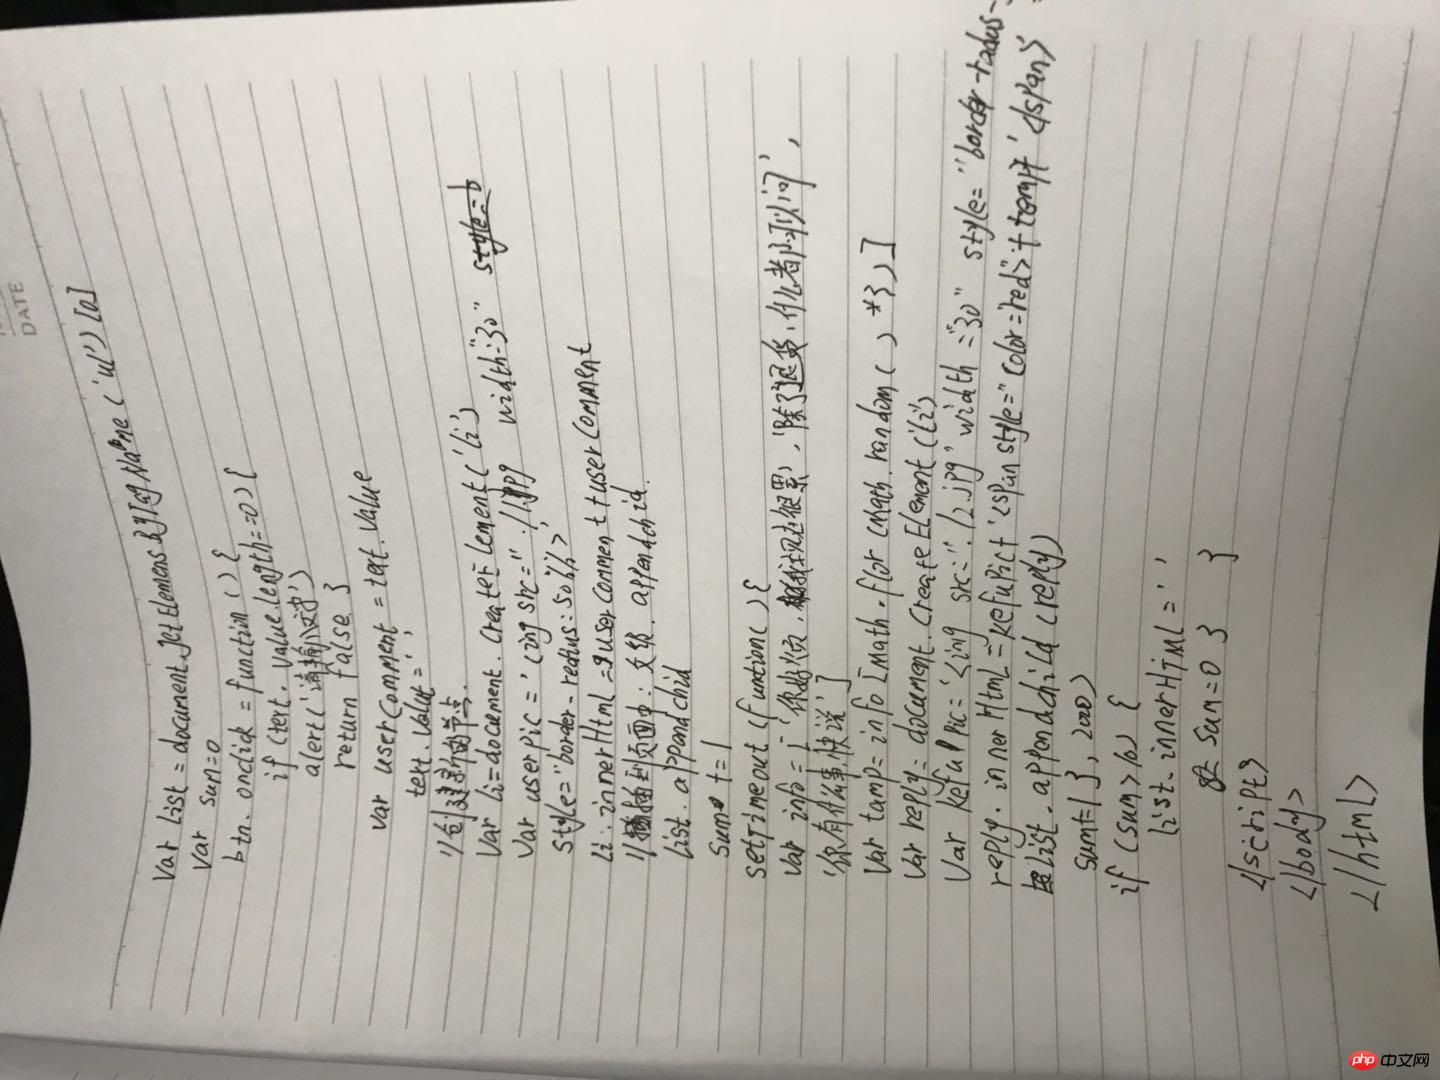 DATE
var list = document.getElemensByTagName('ul')[0]
var sum=0
btn.onclick = function () {
if (text.value.length==0) {
alert('请输入过')
return false }
var userComment = text.value
text.value = '
//创建新的节点
var li=document.createrlement('li')
var userpic = '<img src="./1.jpg width="30"
style="border-redius:50%>'
li.innerHtml = userComment+userComment
//插到页面中:父级.appendchid
list.appandchid
Sum+=1
setTimeout (function(){
var info = ['你好,烦,我现在很累','除了退货,什么者可以问',
'你有什么事,快说']
var tamp=info[Math.flor(Math.random()*3)]
var reply=document.createElement('li)
var kefuPic='<img src="./2.jpg" width="30" style="border-radus-
reply.innerHtml=kefuPic+'<span style="color=red">'+temp+'</span>
list.appendchild(reply)
sum+=1},2000)
if (sum>10) {
list.innerHTML=''
sum=0 } }
</script>
</body>
</html>
php 中文网